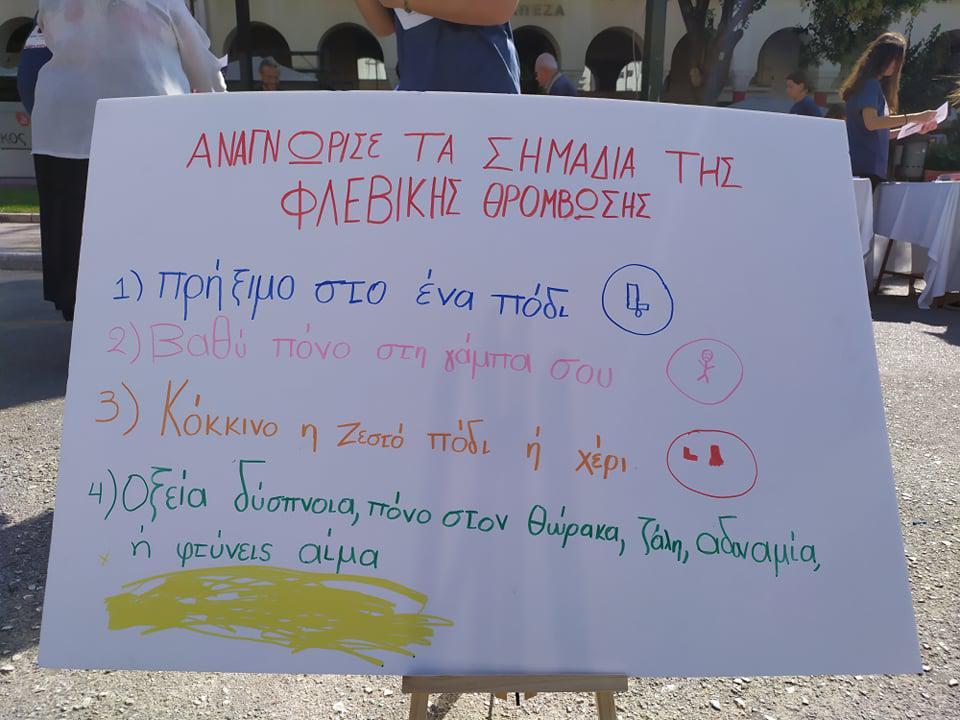 ΠΕΖΑ
ΚΟΣ
ΑΝΑΓΝΩΡΙΣΕ ΤΑ ΣΗΜΑΔΙΑ ΤΗΣ
ΦΛΕΒΙΚΗΣ ΘΡΟΜΒΩΣΗΣ
1) πρήξιμο στο ένα πόδι
2) Βαθύ πόνο στη γάμπα σου
3) Κόκκινο η Ζεστό πόδι ή χέρι
4) Οξεία δύσπνοια, πόνο στον θώρακα, ζάλη, αδυναμία,
ή φτύνεις αίμα